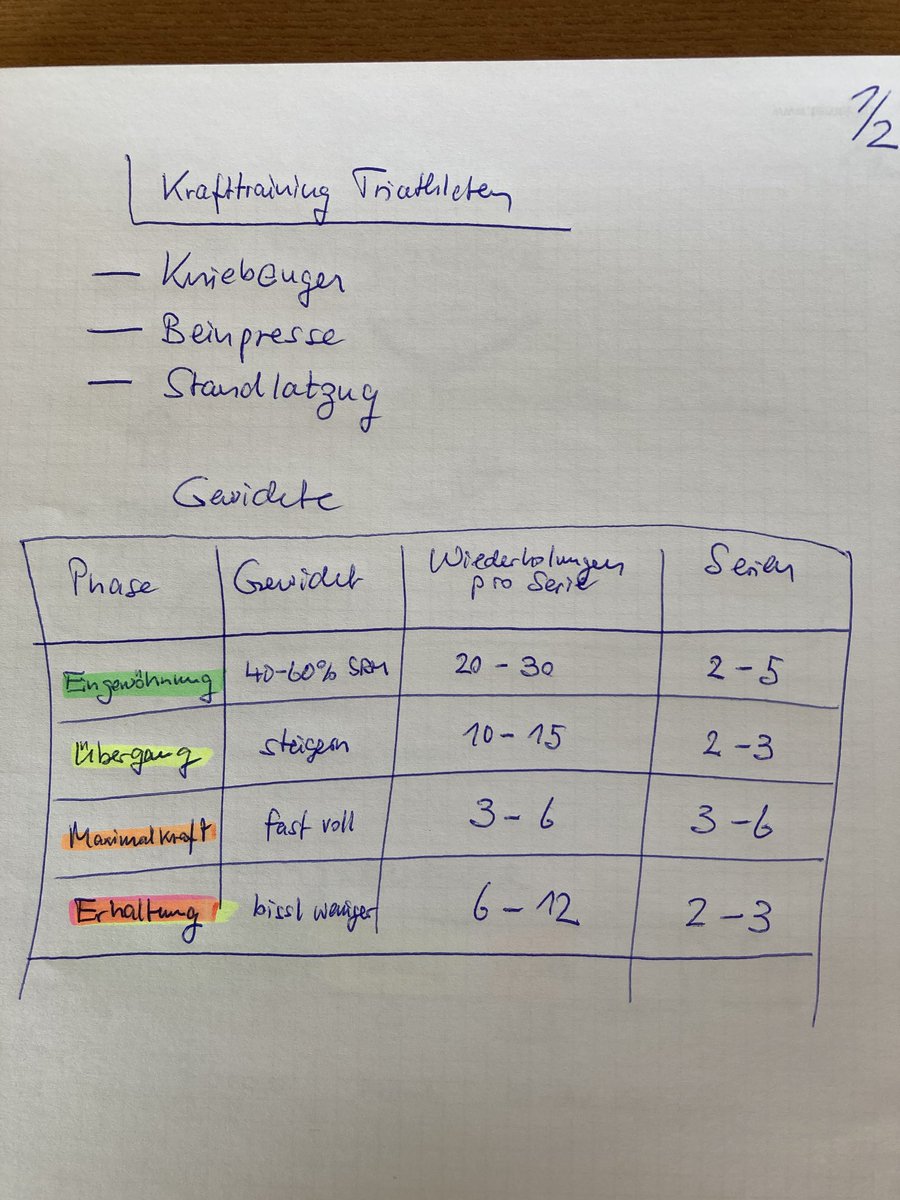 1/2
Krafttraining Triathleten
— Kniebeugen
— Beinpresse
— Standlatzug
Gewichte
Phase Gewicht Wiederholungen pro Serie Serien
Eingewöhnung 40-60% SRM 20 - 30 2 - 5
Übergang steigern 10 - 15 2 - 3
Maximalkraft fast voll 3 - 6 3 - 6
Erhaltung bissl weniger 6 - 12 2 - 3